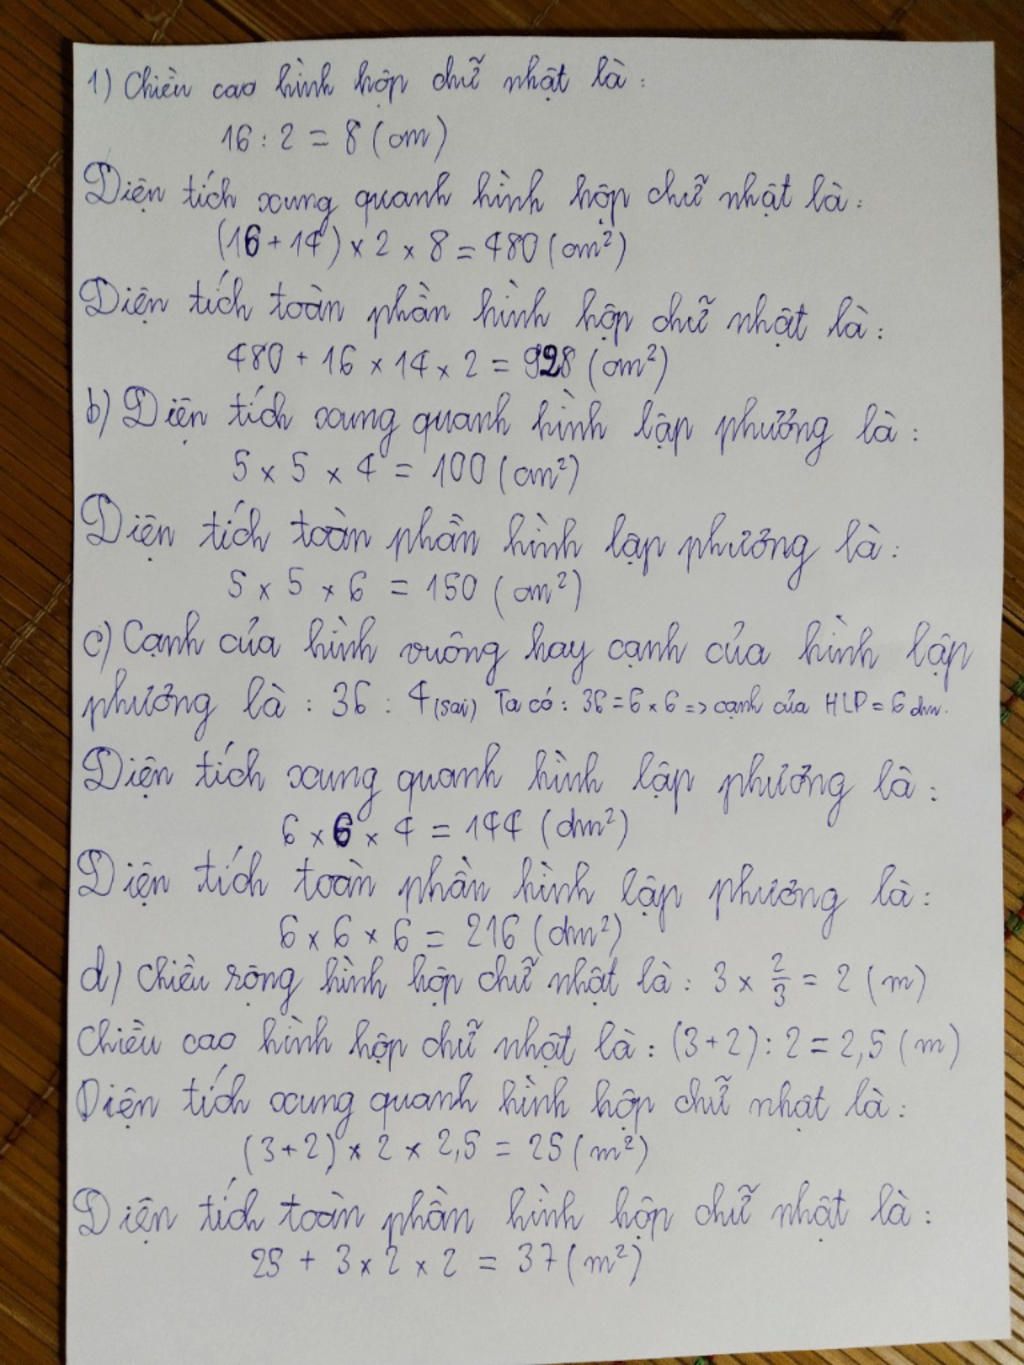 1) Chiều cao hình hộp chữ nhật là:
16 : 2 = 8 (cm)
Diện tích xung quanh hình hộp chữ nhật là:
(16 + 14) × 2 × 8 = 480 (cm²)
Diện tích toàn phần hình hộp chữ nhật là:
480 + 16 × 14 × 2 = 928 (cm²)
b) Diện tích xung quanh hình lập phương là:
5 × 5 × 4 = 100 (cm²)
Diện tích toàn phần hình lập phương là:
5 × 5 × 6 = 150 (cm²)
c) Cạnh của hình vuông hay cạnh của hình lập
phương là : 36 : 4 (sai) Ta có : 36 = 6 × 6 => cạnh của HLP = 6 dm.
Diện tích xung quanh hình lập phương là:
6 × 6 × 4 = 144 (dm²)
Diện tích toàn phần hình lập phương là:
6 × 6 × 6 = 216 (dm²)
d) Chiều rộng hình hộp chữ nhật là : 3 × 2/3 = 2 (m)
Chiều cao hình hộp chữ nhật là : (3 + 2) : 2 = 2,5 (m)
Diện tích xung quanh hình hộp chữ nhật là:
(3 + 2) × 2 × 2,5 = 25 (m²)
Diện tích toàn phần hình hộp chữ nhật là:
25 + 3 × 2 × 2 = 37 (m²)